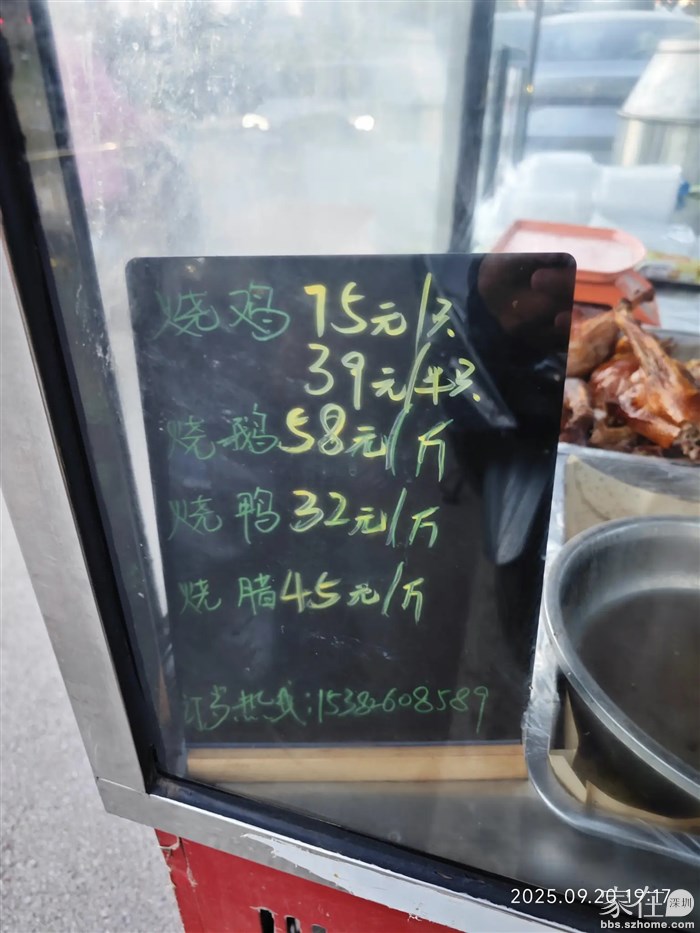 烧鸡 75元/只
39元/半只
烧鹅 58元/斤
烧鸭 32元/斤
烧腊 45元/斤
订当热线:15382608589
2025.09.20 19:17
家在深圳
bbs.szhome.com